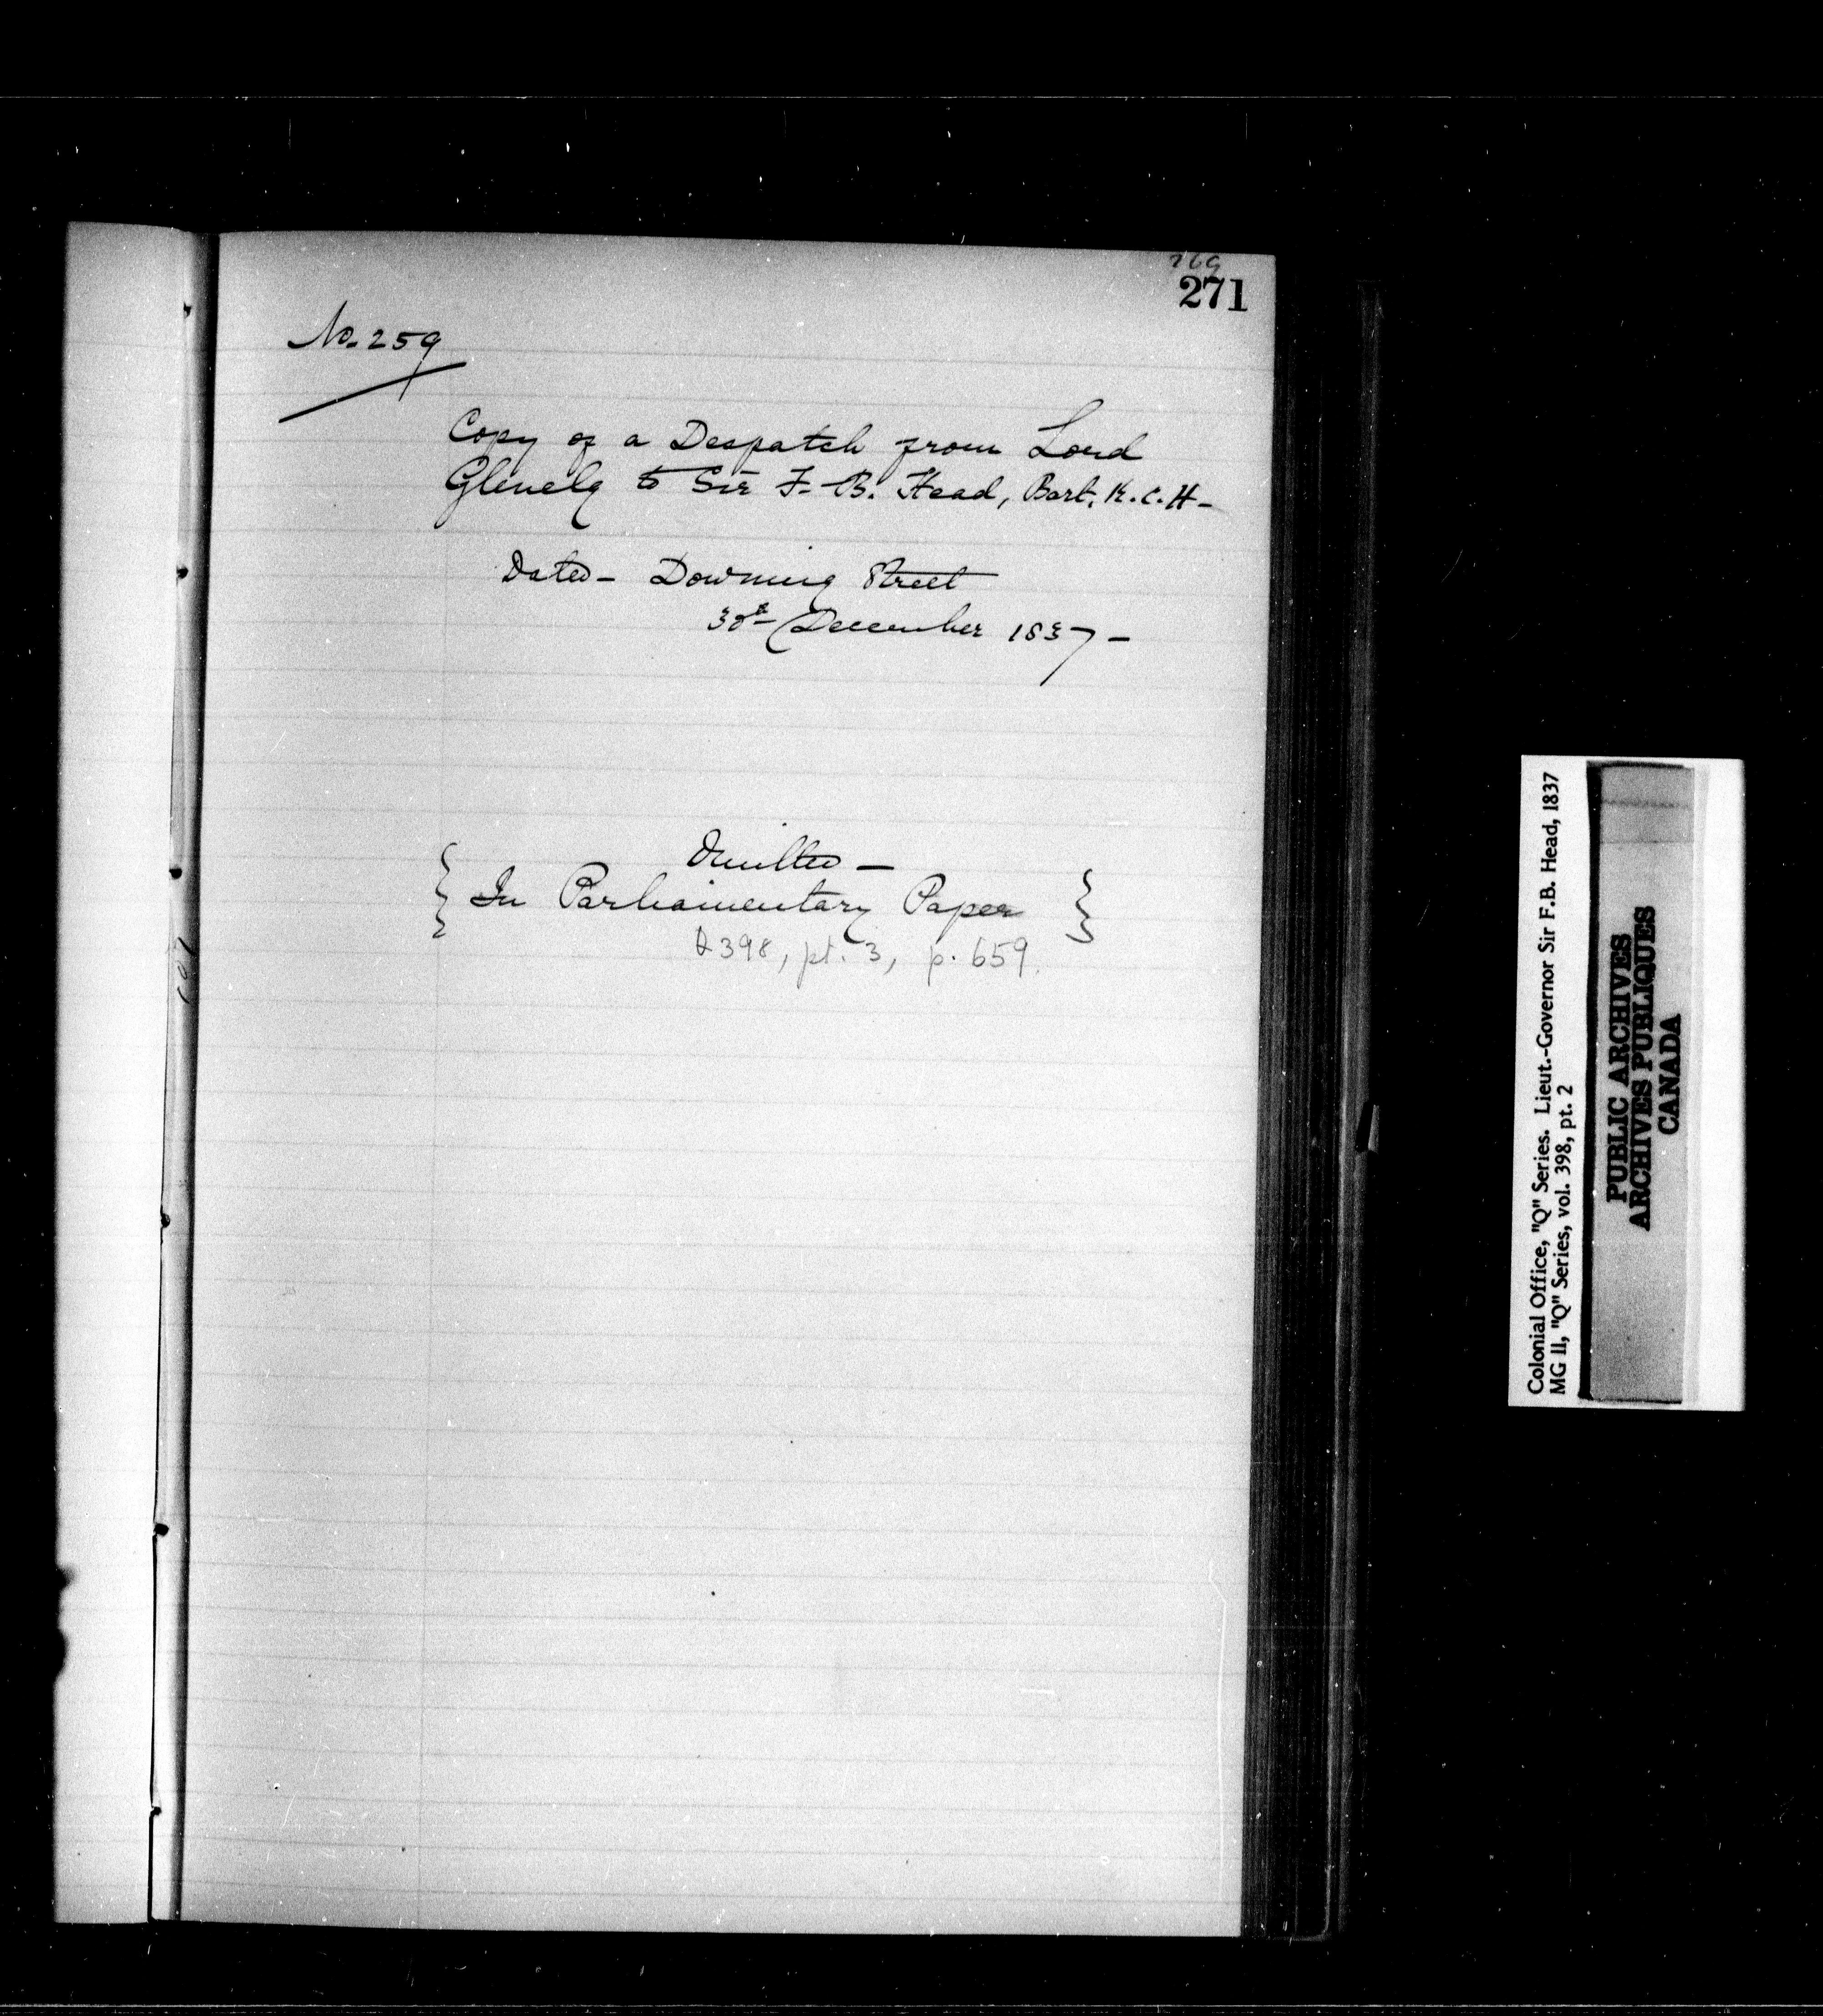 269
271
No. 259
Copy of a Despatch from Lord
Glenelg to Sir F. B. Head, Bart. K.C.H-
Dated - Downing Street
30th December 1837 -
Omitted -
{ In Parliamentary Paper }
Q 398, pt. 3, p. 659.
Colonial Office, "Q" Series. Lieut.-Governor Sir F.B. Head, 1837
MG 11, "Q" Series, vol. 398, pt. 2
PUBLIC ARCHIVES
ARCHIVES PUBLIQUES
CANADA